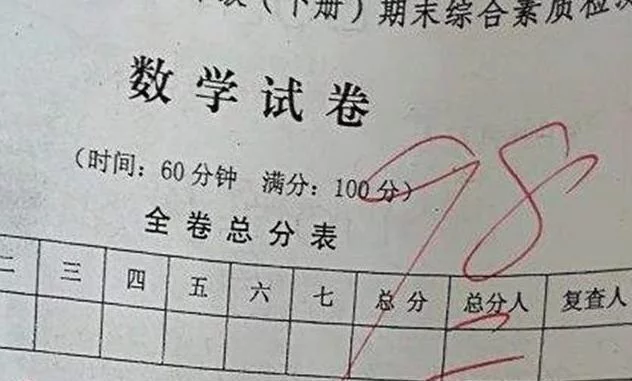 （下册）期末综合素质检测
数学试卷
（时间：60分钟 满分：100分）
98
全卷总分表
二 三 四 五 六 七 总分 总分人 复查人